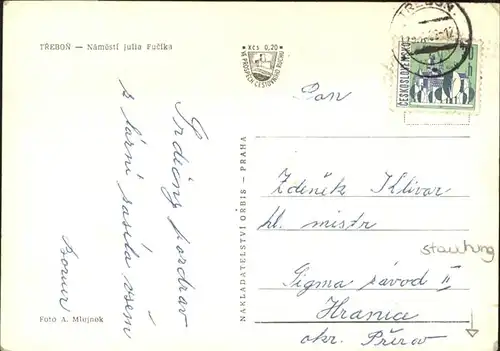 TŘEBOŇ — Náměstí Julia Fučíka
Srdečný pozdrav
z lázní zasílá všem
Borner
Foto A. Mlejnek
Kčs 0,20
VE PROSPĚCH CESTOVNÍHO RUCHU
NAKLADATELSTVÍ ORBIS - PRAHA
TŘEBOŇ
ČESKOSLOVENSKO
Pan
Zdeněk Klivar
hl. mistr
Sigma závod II
Hranice
okr. Přerov